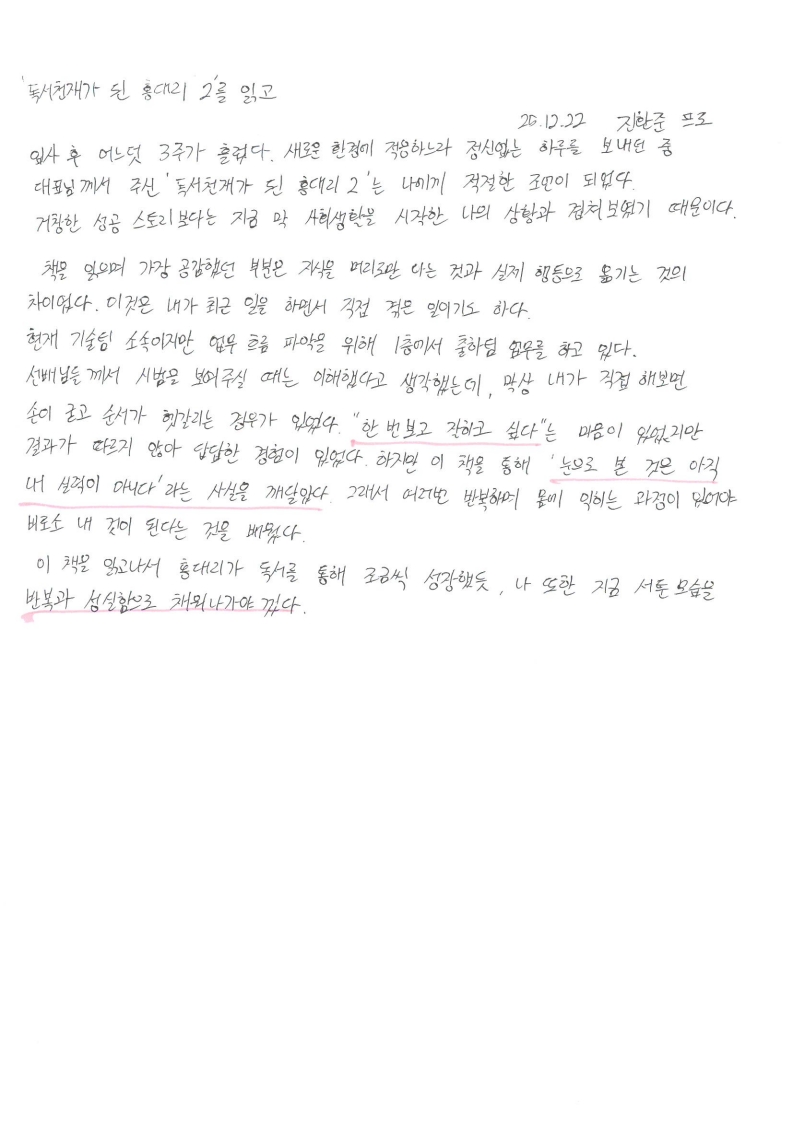 '독서천재가 된 홍대리 2'를 읽고
25.12.22 진한준 프로
입사 후 어느덧 3주가 흘렀다. 새로운 환경에 적응하느라 정신없는 하루를 보내던 중
대표님께서 주신 '독서천재가 된 홍대리 2'는 나에게 적절한 조언이 되었다.
거창한 성공 스토리보다는 지금 막 사회생활을 시작한 나의 상황과 겹쳐보였기 때문이다.
책을 읽으며 가장 공감했던 부분은 지식을 머리로만 아는 것과 실제 행동으로 옮기는 것의
차이였다. 이것은 내가 최근 일을 하면서 직접 겪은 일이기도 하다.
현재 기술팀 소속이지만 업무 흐름 파악을 위해 1층에서 출하팀 업무를 하고 있다.
선배님들께서 시범을 보여주실 때는 이해했다고 생각했는데, 막상 내가 직접 해보면
손이 굳고 순서가 헷갈리는 경우가 있었다. "한 번보고 잘하고 싶다"는 마음이 있었지만
결과가 따르지 않아 답답한 경험이 있었다. 하지만 이 책을 통해 '눈으로 본 것은 아직
내 실력이 아니다'라는 사실을 깨달았다. 그래서 여러번 반복하며 몸에 익히는 과정이 있어야
비로소 내 것이 된다는 것을 배웠다.
이 책을 읽고나서 홍대리가 독서를 통해 조금씩 성장했듯, 나 또한 지금 서툰 모습을
반복과 성실함으로 채워나가야 겠다.